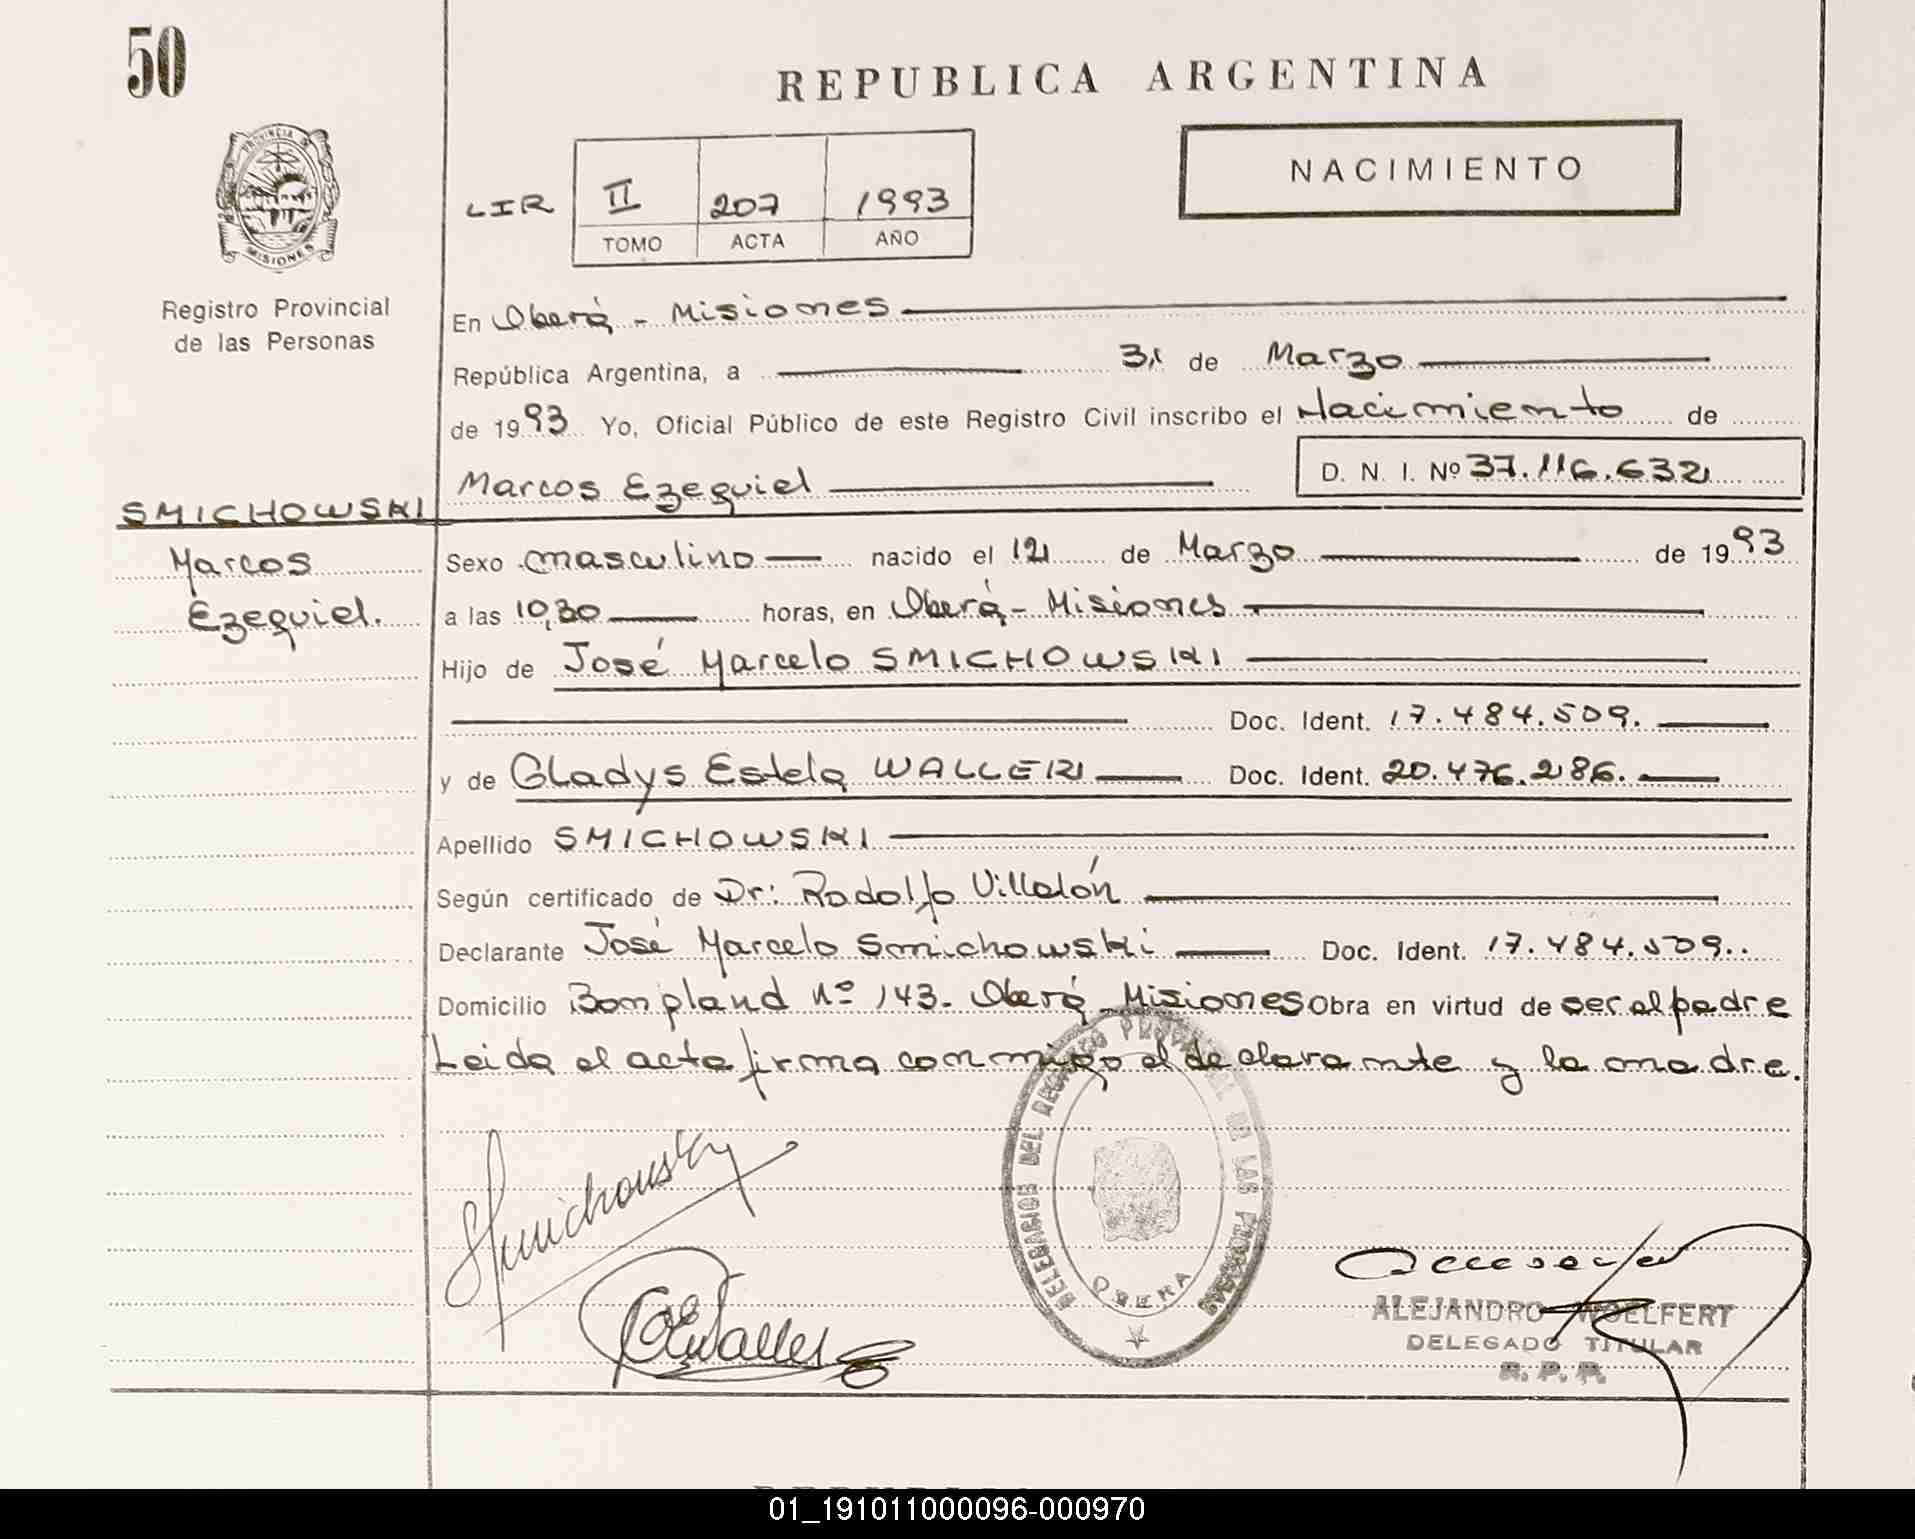 50
REPUBLICA ARGENTINA
PROVINCIA D MISIONES
NACIMIENTO
LIR II 207 1993
TOMO ACTA AÑO
Registro Provincial
de las Personas
En Oberá - Misiones
República Argentina, a 31 de Marzo
de 1993 Yo, Oficial Público de este Registro Civil inscribo el Nacimiento de
Marcos Ezequiel D. N. I. Nº 37.116.632
SMICHOWSKI
Marcos
Ezequiel.
Sexo masculino nacido el 12 de Marzo de 1993
a las 10,30 horas, en Oberá - Misiones
Hijo de José Marcelo SMICHOWSKI
Doc. Ident. 17.484.509.
y de Gladys Estela WALLER Doc. Ident. 20.476.286.
Apellido SMICHOWSKI
Según certificado de Dr: Rodolfo Villalón
Declarante José Marcelo Smichowski Doc. Ident. 17.484.509..
Domicilio Bompland Nº 143. Oberá Misiones Obra en virtud de ser el padre
Leida el acta firma conmigo el declarante y la madre.
Smichowsky
GEWaller
OBERA
ALEJANDRO WOELFERT
DELEGADO TITULAR
R. P. P.
01_191011000096-000970